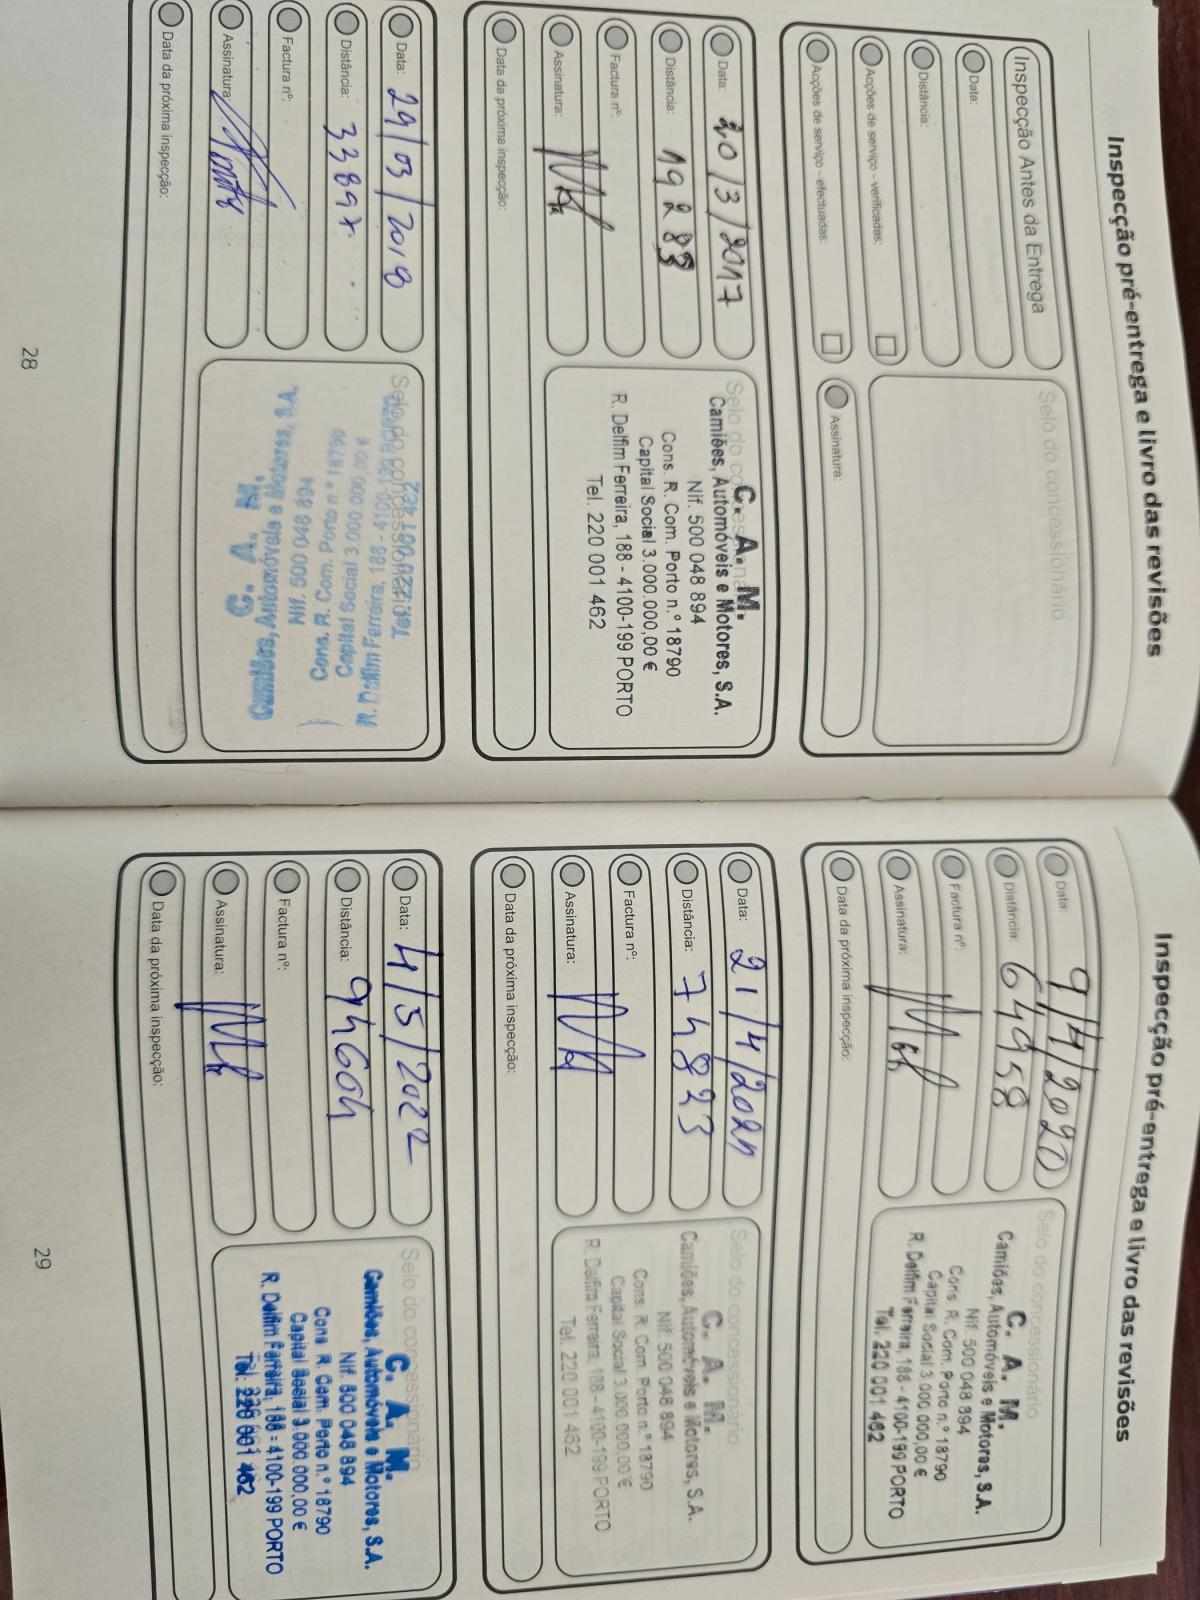 Inspecção pré-entrega e livro das revisões
Inspecção Antes da Entrega
Data:
Distância:
Acções de serviço - verificadas:
Acções de serviço - efectuadas:
Selo do concessionário
Assinatura:
Data: 20/3/2017
Distância: 19283
Factura nº:
Assinatura:
Data da próxima inspecção:
Selo do concessionário
C. A. M.
Camiões, Automóveis e Motores, S.A.
Nif. 500 048 894
Cons. R. Com. Porto n.º 18790
Capital Social 3.000.000,00 €
R. Delfim Ferreira, 188 - 4100-199 PORTO
Tel. 220 001 462
Data: 29/03/2018
Distância: 33897
Factura nº:
Assinatura:
Data da próxima inspecção:
Selo do concessionário
C. A. M.
Camiões, Automóveis e Motores, S.A.
Nif. 500 048 894
Cons. R. Com. Porto n.º 18790
Capital Social 3.000.000,00 €
R. Delfim Ferreira, 188 - 4100-199 PORTO
Tel. 220 001 462
28
Inspecção pré-entrega e livro das revisões
Data: 9/4/2020
Distância: 64958
Factura nº:
Assinatura:
Data da próxima inspecção:
Selo do concessionário
C. A. M.
Camiões, Automóveis e Motores, S.A.
Nif. 500 048 894
Cons. R. Com. Porto n.º 18790
Capital Social 3.000.000,00 €
R. Delfim Ferreira, 188 - 4100-199 PORTO
Tel. 220 001 462
Data: 21/4/2021
Distância: 74823
Factura nº:
Assinatura:
Data da próxima inspecção:
Selo do concessionário
C. A. M.
Camiões, Automóveis e Motores, S.A.
Nif. 500 048 894
Cons. R. Com. Porto n.º 18790
Capital Social 3.000.000,00 €
R. Delfim Ferreira, 188 - 4100-199 PORTO
Tel. 220 001 462
Data: 4/5/2022
Distância: 94604
Factura nº:
Assinatura:
Data da próxima inspecção:
Selo do concessionário
C. A. M.
Camiões, Automóveis e Motores, S.A.
Nif. 500 048 894
Cons. R. Com. Porto n.º 18790
Capital Social 3.000.000,00 €
R. Delfim Ferreira, 188 - 4100-199 PORTO
Tel. 220 001 462
29